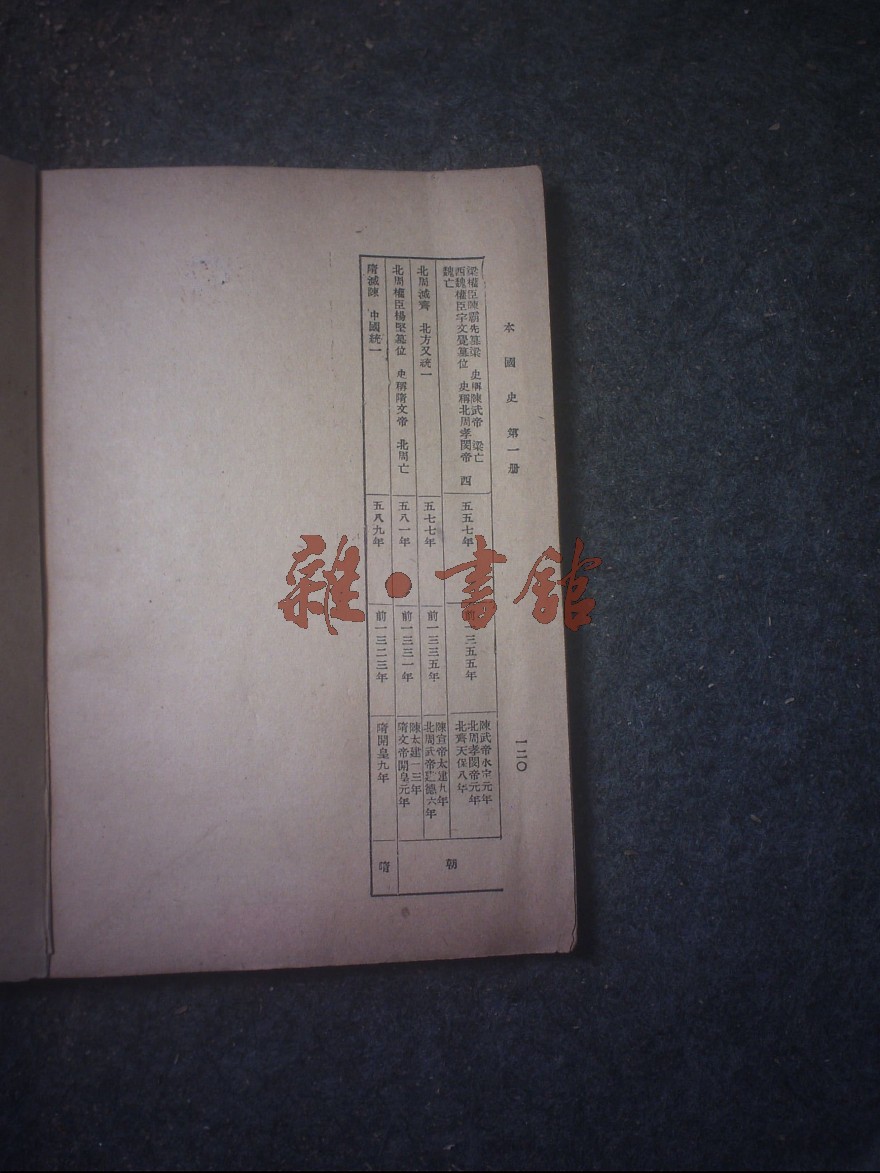 本國史 第一冊
一二〇
梁權臣陳霸先篡梁 史稱陳武帝 梁亡
西魏權臣宇文覺篡位 史稱北周孝閔帝 西
魏亡
五五七年
前一三五五年
陳武帝永定元年
北周孝閔帝元年
北齊天保八年
北周滅齊 北方又統一
五七七年
前一三三五年
陳宣帝太建九年
北周武帝建德六年
北周權臣楊堅篡位 史稱隋文帝 北周亡
五八一年
前一三三一年
陳太建一三年
隋文帝開皇元年
朝
隋滅陳 中國統一
五八九年
前一三二三年
隋開皇九年
隋
雜·書館